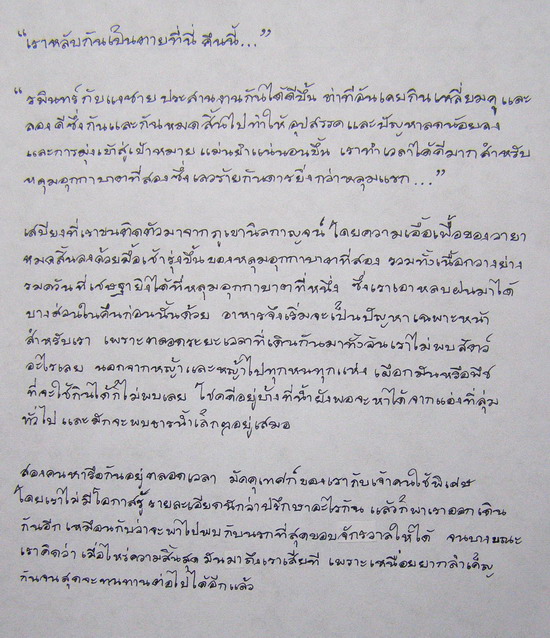 “เราหลับกันเป็นตายที่นี่ คืนนี้...”
“รพินทร์กับแงซาย ประสานงานกันได้ดีขึ้น ท่าทีอันเคยกินเหลี่ยมคู และ
ลองดีซึ่งกันและกันหมดสิ้นไป ทำให้อุปสรรคและปัญหาลดน้อยลง
และการมุ่งเข้าสู่เป้าหมาย แม่นยำแน่นอนขึ้น เราทำเวลาได้ดีมาก สำหรับ
หลุมอุกกาบาตที่สอง ซึ่งเลวร้ายกันดารยิ่งกว่าหลุมแรก...”
เสบียงที่เราขนติดตัวมาจากภูเขานิลกาญจน์ โดยความเอื้อเฟื้อของวายา
หมดสิ้นลงด้วยมื้อเช้ารุ่งขึ้นของหลุมอุกกาบาตที่สอง รวมทั้งเนื้อกวางย่าง
รมควันที่เชษฐายิงได้ที่หลุมอุกกาบาตที่หนึ่ง ซึ่งเราเอาหลบฝนมาได้
บางส่วนในคืนก่อนนั้นด้วย อาหารจึงเริ่มจะเป็นปัญหาเฉพาะหน้า
สำหรับเรา เพราะตลอดระยะเวลาที่เดินกันมาทั้งวันเราไม่พบสัตว์
อะไรเลย นอกจากหญ้าและหญ้าไปทุกหนทุกแห่ง เผือกมันหรือพืช
ที่จะใช้กินได้ก็ไม่พบเลย โชคดีอยู่บ้างที่น้ำยังพอจะหาได้จากแอ่งที่ลุ่ม
ทั่วไป และมักจะพบธารน้ำเล็กๆอยู่เสมอ
สองคนหารือกันอยู่ตลอดเวลา มัคคุเทศก์ของเรากับเจ้าคนใช้พิเศษ
โดยเราไม่มีโอกาสรู้รายละเอียดนักว่าปรึกษาอะไรกัน แล้วก็พาเราออกเดิน
กันอีก เหมือนกับว่าจะพาไปพบกับนรกที่สุดขอบจักรวาลให้ได้ จนบางขณะ
เราคิดว่า เมื่อไหร่ความสิ้นสุดมันมาถึงเราเสียที เพราะเหนื่อยยากลำเค็ญ
กันจนสุดจะทนทานต่อไปได้อีกแล้ว